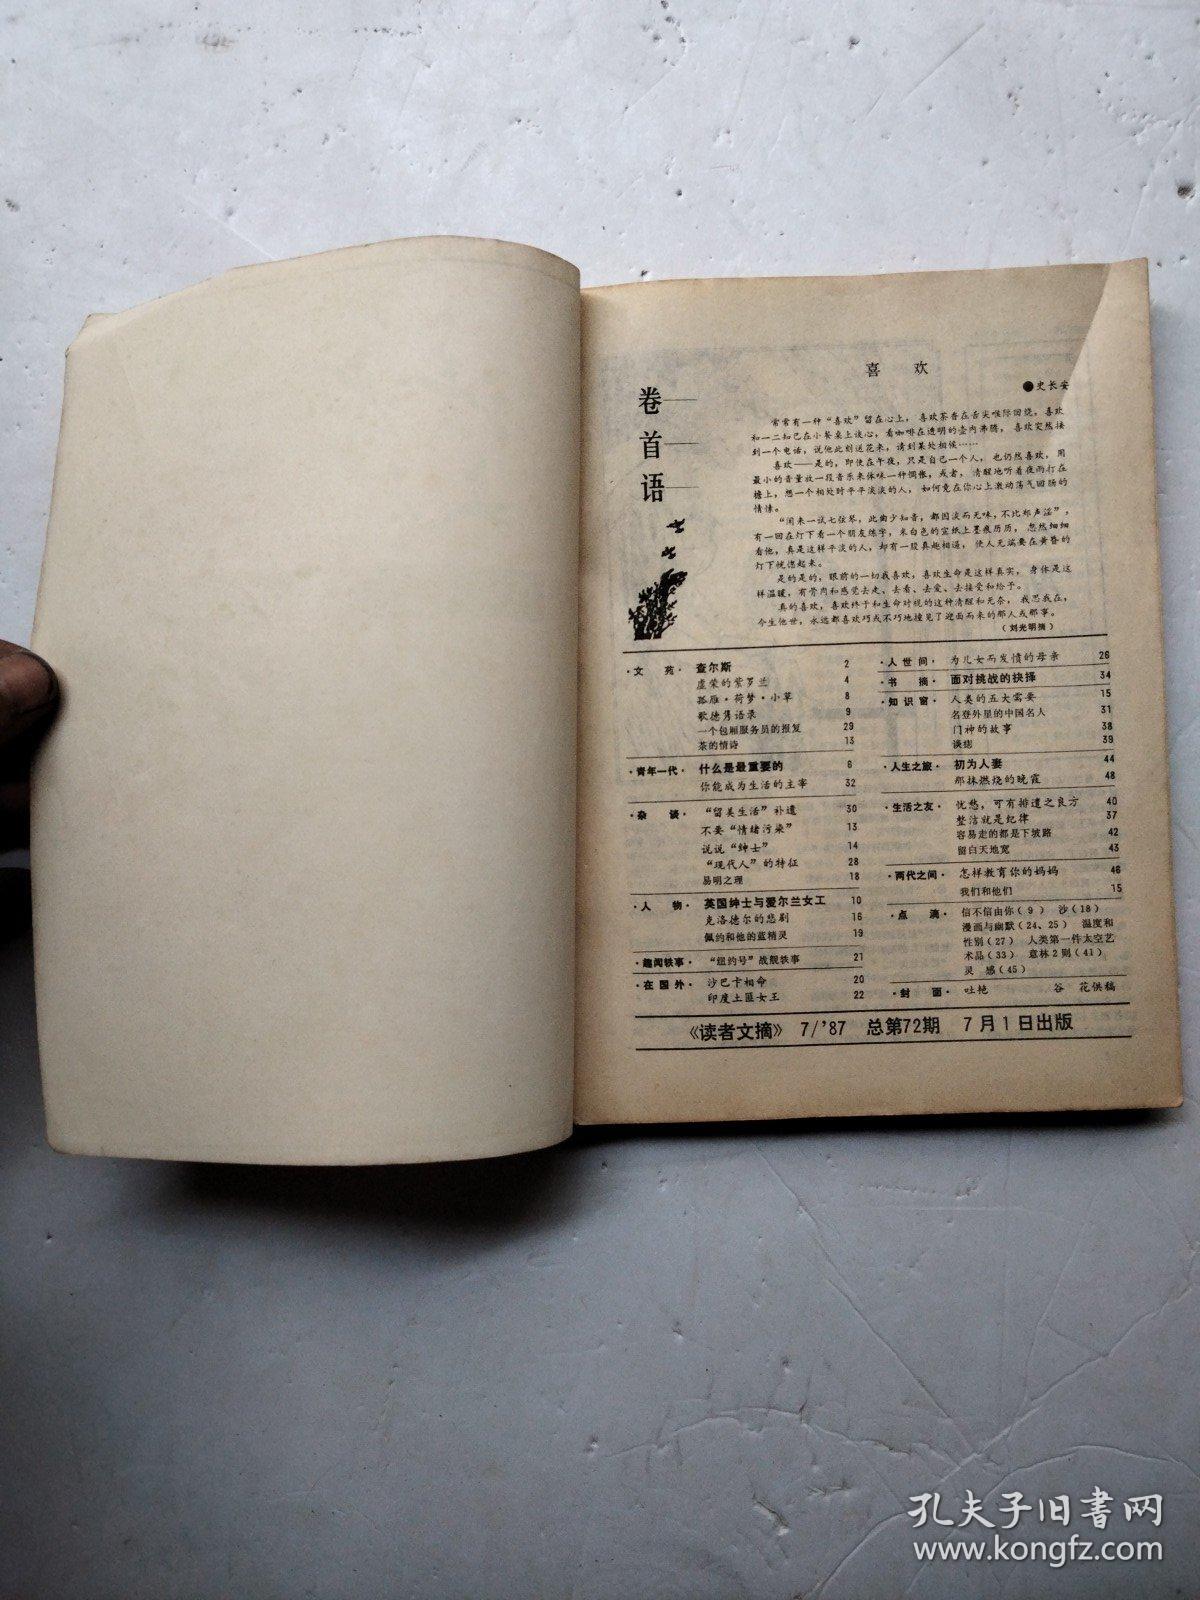 卷首语
喜 欢
●史长安
常常有一种“喜欢”留在心上,喜欢茶香在舌尖喉际回绕,喜欢
和一二知己在小餐桌上谈心,看咖啡在透明的壶内沸腾,喜欢突然接
到一个电话,说他此刻送花来,请到某处相候……
喜欢——是的,即使在午夜,只是自己一个人,也仍然喜欢,用
最小的音量放一段音乐来体味一种惆怅,或者,清醒地听着夜雨打在
檐上,想一个相处时平平淡淡的人,如何竟在你心上激动荡气回肠的
情愫。
“闲来一试七弦琴,此曲少知音,都因淡而无味,不比郑声淫”,
有一回在灯下看一个朋友练字,米白色的宣纸上墨痕历历,忽然细细
看他,真是这样平淡的人,却有一股真趣相逼,使人无端要在黄昏的
灯下恍惚起来。
是的是的,眼前的一切我喜欢,喜欢生命是这样真实,身体是这
样温暖,有骨肉和感觉去走、去看、去爱、去接受和给予。
真的喜欢,喜欢终于和生命对悦的这种清醒和无奈,我思我在,
今生他世,永远都喜欢巧或不巧地撞见了迎面而来的那人或那事。
(刘光明摘)
·文 苑· 查尔斯 2
虚荣的紫罗兰 4
孤雁·荷梦·小草 8
歌德隽语录 9
一个包厢服务员的报复 29
茶的情诗 13
·青年一代· 什么是最重要的 6
你能成为生活的主宰 32
·杂 谈· “留美生活”补遗 30
不要“情绪污染” 13
说说“绅士” 14
“现代人”的特征 28
易明之理 18
·人 物· 英国绅士与爱尔兰女工 10
克洛德尔的悲剧 16
佩约和他的蓝精灵 19
·趣闻轶事· “纽约号”战舰轶事 21
·在国外· 沙巴卡相命 20
印度土匪女王 22
·人世间· 为儿女而发愤的母亲 26
·书 摘· 面对挑战的抉择 34
·知识窗· 人类的五大需要 15
名登外里的中国名人 31
门神的故事 38
谈痣 39
·人生之旅· 初为人妻 44
那抹燃烧的晚霞 48
·生活之友· 忧愁,可有排遣之良方 40
整洁就是纪律 37
容易走的都是下坡路 42
留白天地宽 43
·两代之间· 怎样教育你的妈妈 46
我们和他们 15
·点 滴· 信不信由你(9) 沙(18)
漫画与幽默(24、25) 温度和
性别(27) 人类第一件太空艺
术品(33) 意林2则(41)
灵 感(45)
·封 面· 吐艳 谷 花供稿
《读者文摘》 7/'87 总第72期 7月1日出版
孔夫子旧书网
www.kongfz.com